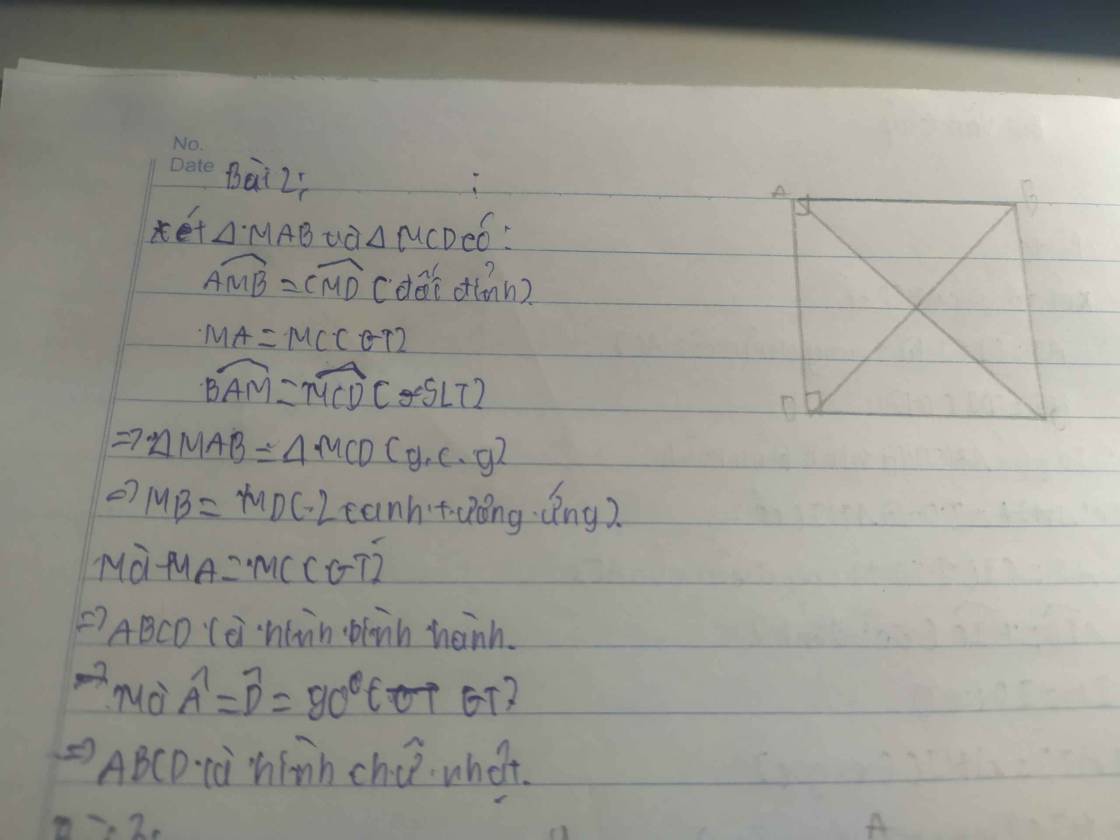 No.
Date
Bài 2:
Xét Δ MAB và Δ MCD có:
AMB = CMD (đối đỉnh)
MA = MC (GT)
BAM = MCD (SLT)
=> Δ MAB = Δ MCD (g.c.g)
=> MB = MD (2 cạnh tương ứng)
Mà MA = MC (GT)
=> ABCD là hình bình hành.
=> Mà Â = D̂ = 90⁰ (GT)
=> ABCD là hình chữ nhật.
A
B
D
A